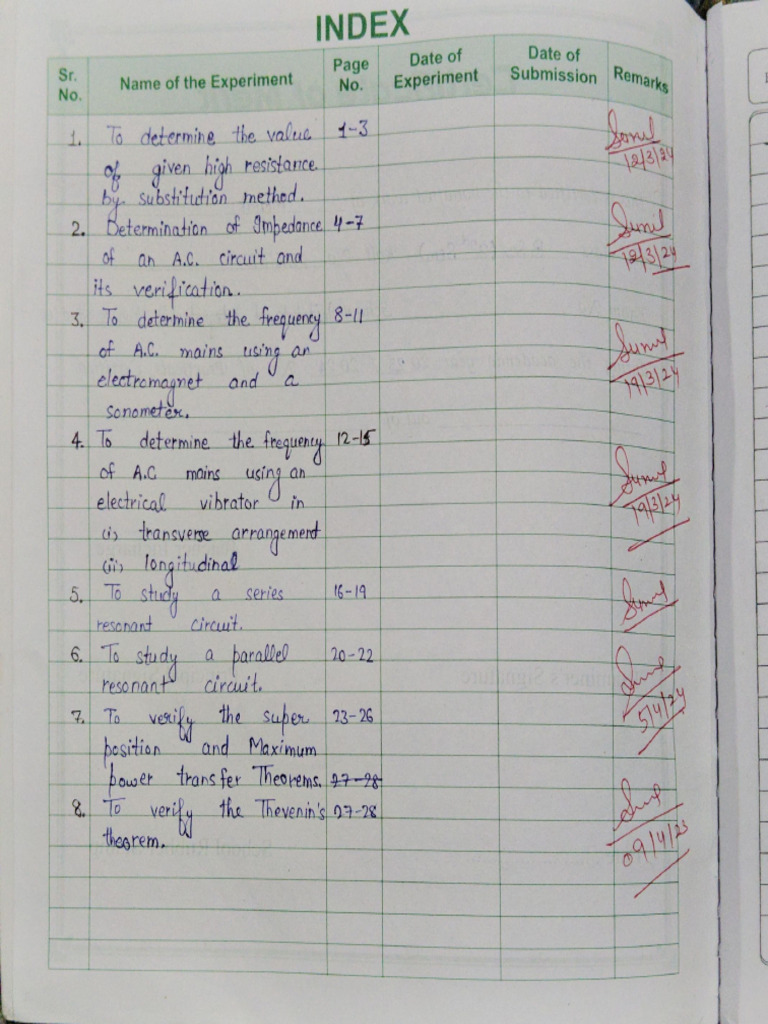 INDEX
Sr. No. Name of the Experiment Page No. Date of Experiment Date of Submission Remarks
1. To determine the value 1-3
of given high resistance
by substitution method.
12/3/24
2. Determination of Impedance 4-7
of an A.C. circuit and
its verification.
Sunil
12/3/24
3. To determine the frequency 8-11
of A.C. mains using an
electromagnet and a
sonometer.
Sunil
19/3/24
4. To determine the frequency 12-15
of A.C mains using an
electrical vibrator in
(i) transverse arrangement
(ii) longitudinal
Sunil
19/3/24
5. To study a series 16-19
resonant circuit.
Sunil
6. To study a parallel 20-22
resonant circuit.
5/4/24
7. To verify the super 23-26
position and Maximum
power transfer Theorems. 27-28
8. To verify the Thevenin's 27-28
theorem.